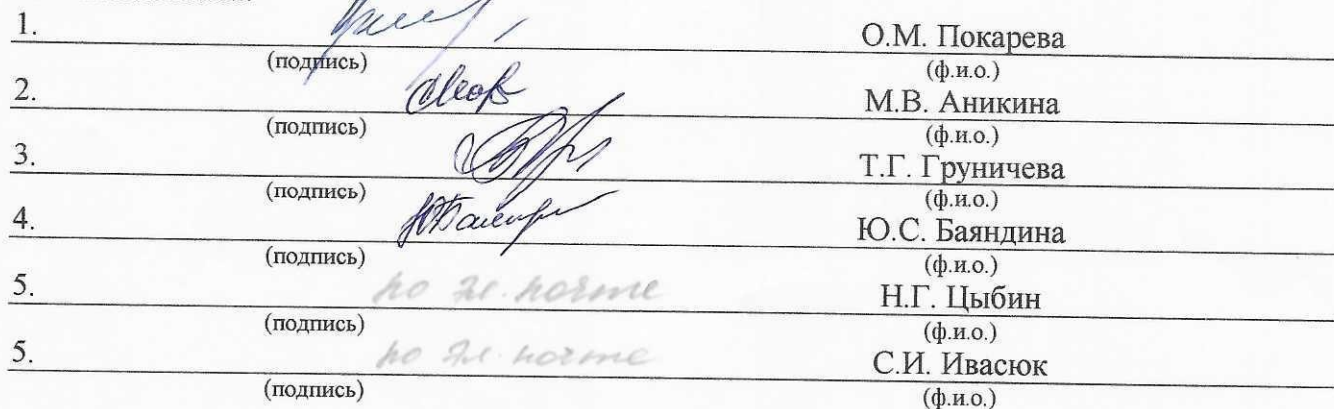 1. О.М. Покарева
(подпись) (ф.и.о.)
2. М.В. Аникина
(подпись) (ф.и.о.)
3. Т.Г. Груничева
(подпись) (ф.и.о.)
4. Ю.С. Баяндина
(подпись) (ф.и.о.)
5. по эл. почте Н.Г. Цыбин
(подпись) (ф.и.о.)
5. по эл. почте С.И. Ивасюк
(подпись) (ф.и.о.)